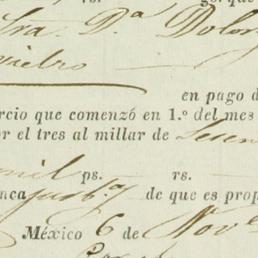 rs. go. que
Sra. D.ª Dolor
en pago d
rcio que comenzó en 1.º del mes
or el tres al millar de Sesen
mil ps. rs.
nca de que es prop
México 6 de Nov.e